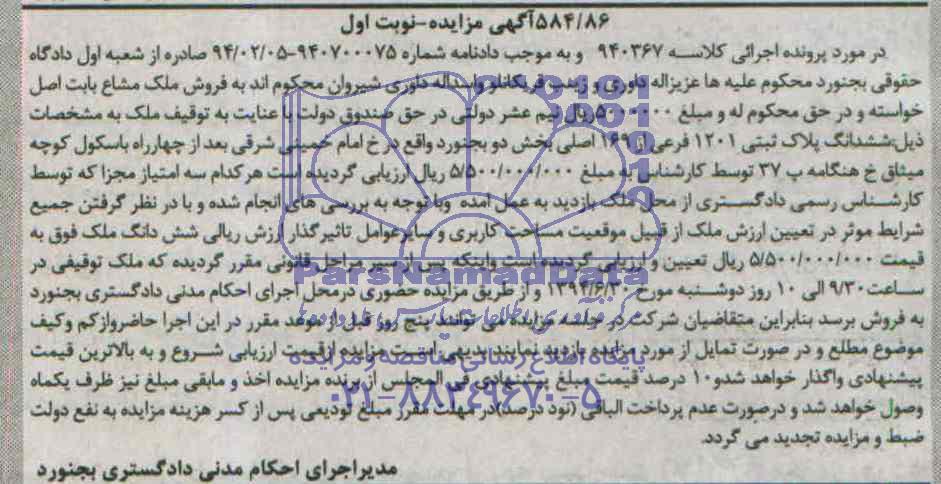 ۵۸۴/۸۶آگهی مزایده-نوبت اول
در مورد پرونده اجرائی کلاسه ۹۴۰۳۶۷ و به موجب دادنامه شماره ۹۴۰۷۰۰۰۷۵-۹۴/۰۲/۰۵ صادره از شعبه اول دادگاه
حقوقی بجنورد محکوم علیه ها عزیزاله داوری و زینب قریکانلو واسداله داوری شیروان محکوم اند به فروش ملک مشاع بابت اصل
خواسته و در حق محکوم له و مبلغ ریال نیم عشر دولتی در حق صندوق دولت با عنایت به توقیف ملک به مشخصات
ذیل:ششدانگ پلاک ثبتی ۱۲۰۱ فرعی از ۱۶۹ اصلی بخش دو بجنورد واقع در خ امام خمینی شرقی بعد از چهارراه باسکول کوچه
میثاق خ هنگامه پ ۳۷ توسط کارشناس به مبلغ ۵/۵۰۰/۰۰۰/۰۰۰ ریال ارزیابی گردیده است هرکدام سه امتیاز مجزا که توسط
کارشناس رسمی دادگستری از محل ملک بازدید به عمل آمده وبا توجه به بررسی های انجام شده و با در نظر گرفتن جمیع
شرایط موثر در تعیین ارزش ملک از قبیل موقعیت مساحت کاربری و سایرعوامل تاثیرگذار ارزش ریالی شش دانگ ملک فوق به
قیمت ۵/۵۰۰/۰۰۰/۰۰۰ ریال تعیین و ارزیابی گردیده است واینکه پس از سیر مراحل قانونی مقرر گردیده که ملک توقیفی در
ساعت۹/۳۰ الی ۱۰ روز دوشنبه مورخ ۱۳۹۴/۶/۳۰ و از طریق مزایده حضوری درمحل اجرای احکام مدنی دادگستری بجنورد
به فروش برسد بنابراین متقاضیان شرکت در جلسه مزایده می توانند پنج روز قبل از موعد مقرر در این اجرا حاضروازکم وکیف
موضوع مطلع و در صورت تمایل از مورد مزایده بازدید نمایند بدیهی است مزایده ازقیمت ارزیابی شروع و به بالاترین قیمت
پیشنهادی واگذار خواهد شدو۱۰ درصد قیمت مبلغ پیشنهادی فی المجلس از برنده مزایده اخذ و مابقی مبلغ نیز ظرف یکماه
وصول خواهد شد و درصورت عدم پرداخت الباقی (نود درصد)در مهلت مقرر مبلغ تودیعی پس از کسر هزینه مزایده به نفع دولت
ضبط و مزایده تجدید می گردد.
مدیراجرای احکام مدنی دادگستری بجنورد
ParsNamadData
پایگاه اطلاع رسانی مناقصه و مزایده
۰۲۱-۸۸۳۴۹۶۷۰-۵